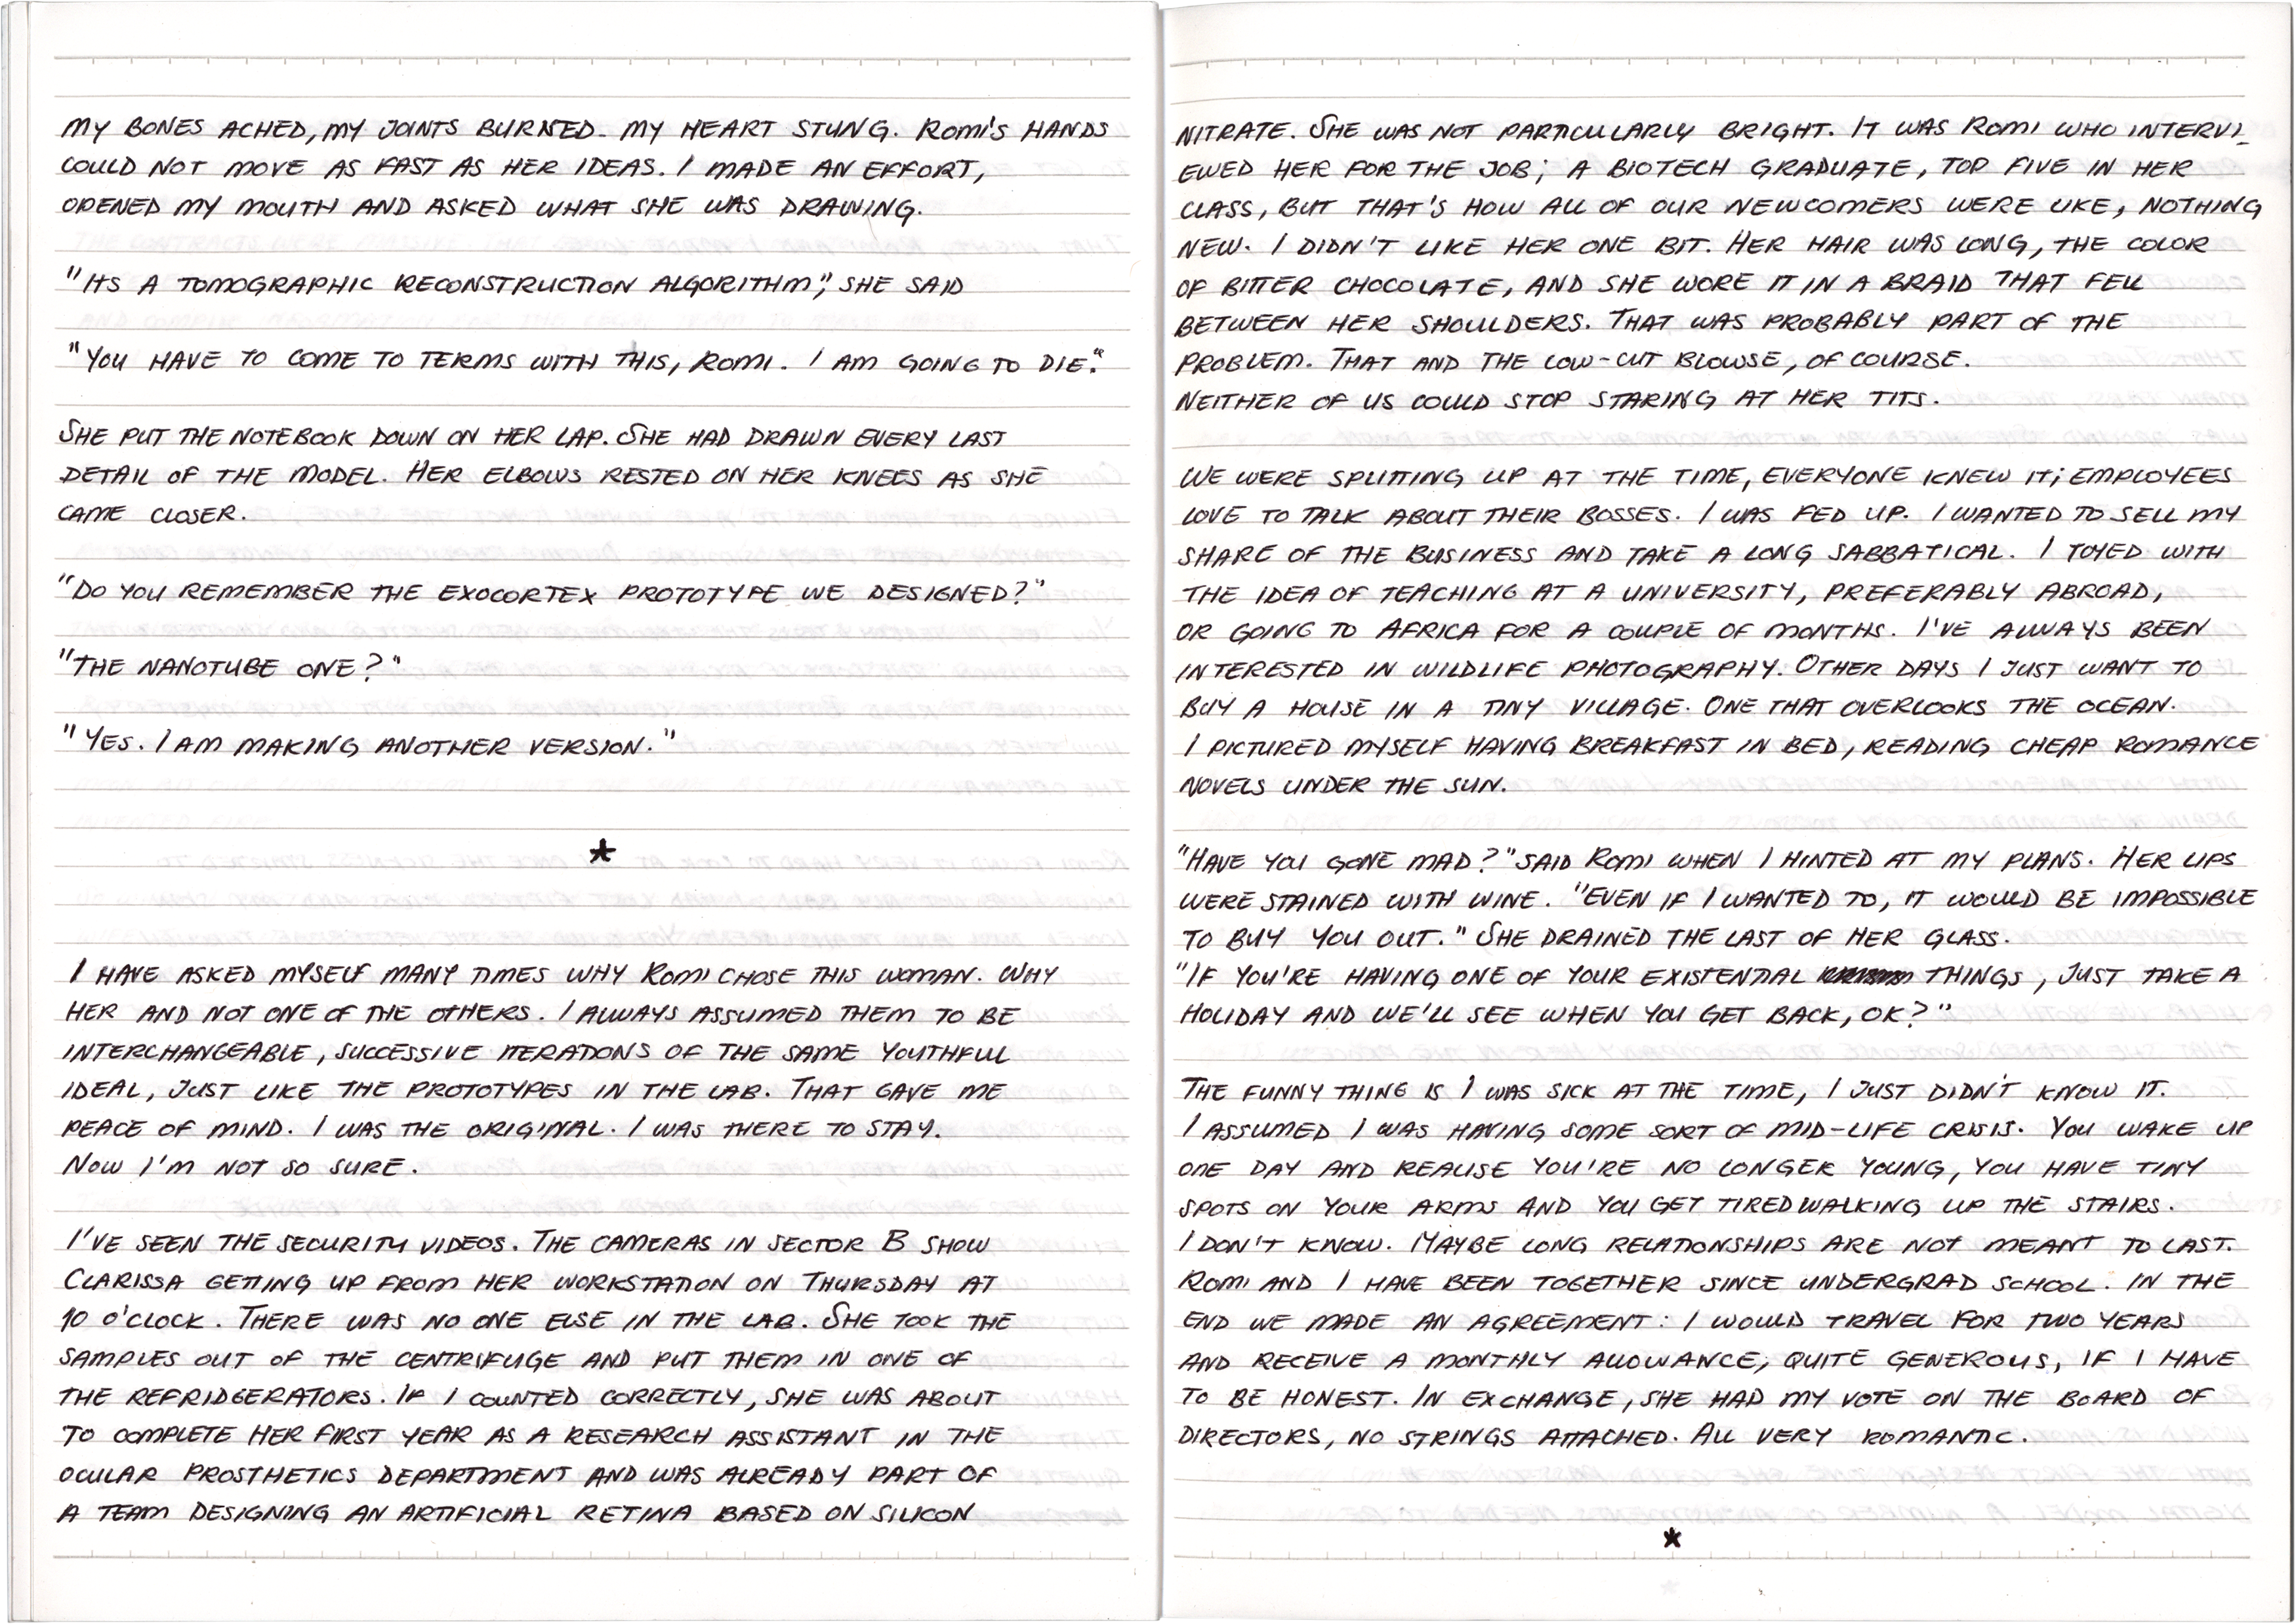 MY BONES ACHED, MY JOINTS BURNED. MY HEART STUNG. ROMI'S HANDS
COULD NOT MOVE AS FAST AS HER IDEAS. I MADE AN EFFORT,
OPENED MY MOUTH AND ASKED WHAT SHE WAS DRAWING.
"ITS A TOMOGRAPHIC RECONSTRUCTION ALGORITHM", SHE SAID
"YOU HAVE TO COME TO TERMS WITH THIS, ROMI. I AM GOING TO DIE."
SHE PUT THE NOTEBOOK DOWN ON HER LAP. SHE HAD DRAWN EVERY LAST
DETAIL OF THE MODEL. HER ELBOWS RESTED ON HER KNEES AS SHE
CAME CLOSER.
"DO YOU REMEMBER THE EXOCORTEX PROTOTYPE WE DESIGNED?"
"THE NANOTUBE ONE?"
"YES. I AM MAKING ANOTHER VERSION."
*
I HAVE ASKED MYSELF MANY TIMES WHY ROMI CHOSE THIS WOMAN. WHY
HER AND NOT ONE OF THE OTHERS. I ALWAYS ASSUMED THEM TO BE
INTERCHANGEABLE, SUCCESSIVE ITERATIONS OF THE SAME YOUTHFUL
IDEAL, JUST LIKE THE PROTOTYPES IN THE LAB. THAT GAVE ME
PEACE OF MIND. I WAS THE ORIGINAL. I WAS THERE TO STAY.
NOW I'M NOT SO SURE.
I'VE SEEN THE SECURITY VIDEOS. THE CAMERAS IN SECTOR B SHOW
CLARISSA GETTING UP FROM HER WORKSTATION ON THURSDAY AT
10 O'CLOCK. THERE WAS NO ONE ELSE IN THE LAB. SHE TOOK THE
SAMPLES OUT OF THE CENTRIFUGE AND PUT THEM IN ONE OF
THE REFRIDGERATORS. IF I COUNTED CORRECTLY, SHE WAS ABOUT
TO COMPLETE HER FIRST YEAR AS A RESEARCH ASSISTANT IN THE
OCULAR PROSTHETICS DEPARTMENT AND WAS ALREADY PART OF
A TEAM DESIGNING AN ARTIFICIAL RETINA BASED ON SILICON
NITRATE. SHE WAS NOT PARTICULARLY BRIGHT. IT WAS ROMI WHO INTERVI_
EWED HER FOR THE JOB; A BIOTECH GRADUATE, TOP FIVE IN HER
CLASS, BUT THAT'S HOW ALL OF OUR NEWCOMERS WERE LIKE, NOTHING
NEW. I DIDN'T LIKE HER ONE BIT. HER HAIR WAS LONG, THE COLOR
OF BITTER CHOCOLATE, AND SHE WORE IT IN A BRAID THAT FELL
BETWEEN HER SHOULDERS. THAT WAS PROBABLY PART OF THE
PROBLEM. THAT AND THE LOW-CUT BLOWSE, OF COURSE.
NEITHER OF US COULD STOP STARING AT HER TITS.
WE WERE SPLITTING UP AT THE TIME, EVERYONE KNEW IT; EMPLOYEES
LOVE TO TALK ABOUT THEIR BOSSES. I WAS FED UP. I WANTED TO SELL MY
SHARE OF THE BUSINESS AND TAKE A LONG SABBATICAL. I TOYED WITH
THE IDEA OF TEACHING AT A UNIVERSITY, PREFERABLY ABROAD,
OR GOING TO AFRICA FOR A COUPLE OF MONTHS. I'VE ALWAYS BEEN
INTERESTED IN WILDLIFE PHOTOGRAPHY. OTHER DAYS I JUST WANT TO
BUY A HOUSE IN A TINY VILLAGE. ONE THAT OVERLOOKS THE OCEAN.
I PICTURED MYSELF HAVING BREAKFAST IN BED, READING CHEAP ROMANCE
NOVELS UNDER THE SUN.
"HAVE YOU GONE MAD?" SAID ROMI WHEN I HINTED AT MY PLANS. HER LIPS
WERE STAINED WITH WINE. "EVEN IF I WANTED TO, IT WOULD BE IMPOSSIBLE
TO BUY YOU OUT." SHE DRAINED THE LAST OF HER GLASS.
"IF YOU'RE HAVING ONE OF YOUR EXISTENTIAL THINGS, JUST TAKE A
HOLIDAY AND WE'LL SEE WHEN YOU GET BACK, OK?"
THE FUNNY THING IS I WAS SICK AT THE TIME, I JUST DIDN'T KNOW IT.
I ASSUMED I WAS HAVING SOME SORT OF MID-LIFE CRISIS. YOU WAKE UP
ONE DAY AND REALISE YOU'RE NO LONGER YOUNG, YOU HAVE TINY
SPOTS ON YOUR ARMS AND YOU GET TIRED WALKING UP THE STAIRS.
I DON'T KNOW. MAYBE LONG RELATIONSHIPS ARE NOT MEANT TO LAST.
ROMI AND I HAVE BEEN TOGETHER SINCE UNDERGRAD SCHOOL. IN THE
END WE MADE AN AGREEMENT: I WOULD TRAVEL FOR TWO YEARS
AND RECEIVE A MONTHLY ALLOWANCE, QUITE GENEROUS, IF I HAVE
TO BE HONEST. IN EXCHANGE, SHE HAD MY VOTE ON THE BOARD OF
DIRECTORS, NO STRINGS ATTACHED. ALL VERY ROMANTIC.
*